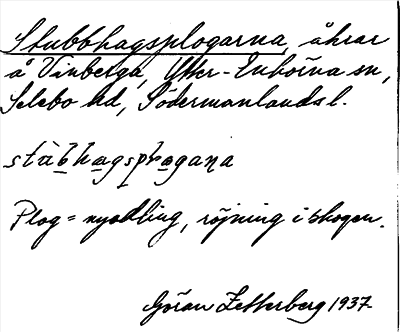 Stubbhagsplogarna, åkrar
å Vinberga, Ytter-Enhörna sn,
Selebo hd, Södermanlands l.
stùbhagsplogaṇa
Plog = nyodling, röjning i skogen.
Göran Zetterberg 1937